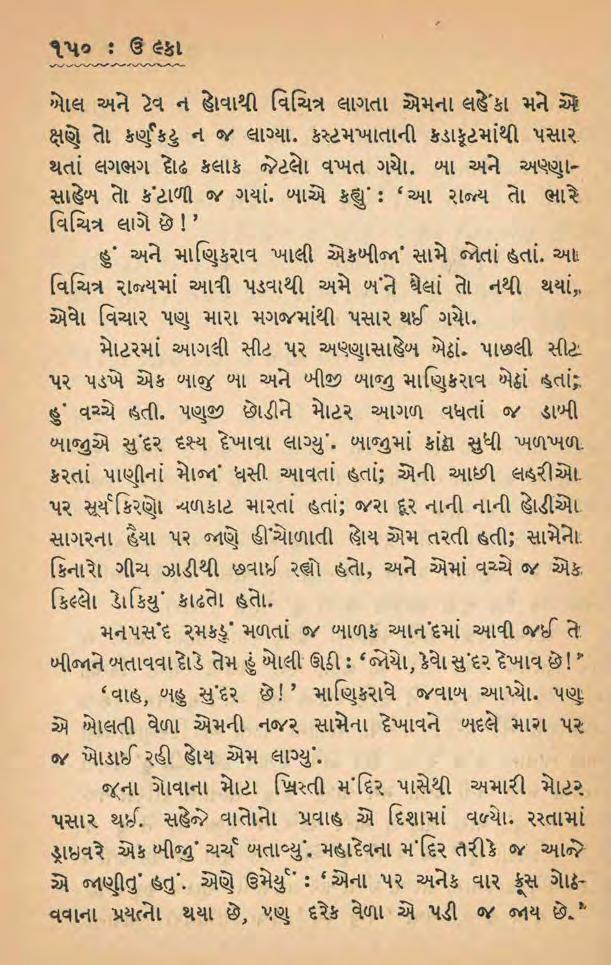 ૧૫૦ : ઉ લ્કા
બોલ અને ટેવ ન હોવાથી વિચિત્ર લાગતા એમના લહેંકા મને એ
ક્ષણે તો કર્ણકટુ ન જ લાગ્યા. કસ્ટમખાતાની કડાકૂટમાંથી પસાર
થતાં લગભગ દોઢ કલાક જેટલો વખત ગયો. બા અને અણ્ણા-
સાહેબ તો કંટાળી જ ગયાં. બાએ કહ્યું : ‘આ રાજ્ય તો ભારે
વિચિત્ર લાગે છે ! ’
હું અને માણિકરાવ ખાલી એકબીજાં સામે જોતાં હતાં. આ
વિચિત્ર રાજ્યમાં આવી પડવાથી અમે બંને ઘેલાં તો નથી થયાં,
એવો વિચાર પણ મારા મગજમાંથી પસાર થઈ ગયો.
મોટરમાં આગલી સીટ પર અણ્ણાસાહેબ બેઠાં. પાછલી સીટ
પર પડખે એક બાજુ બા અને બીજી બાજુ માણિકરાવ બેઠાં હતાં;
હું વચ્ચે હતી. પણજી છોડીને મોટર આગળ વધતાં જ ડાબી
બાજુએ સુંદર દૃશ્ય દેખાવા લાગ્યું. બાજુમાં કાંઠા સુધી ખળખળ
કરતાં પાણીનાં મોજાં ધસી આવતાં હતાં; એની આછી લહરીઓ
પર સૂર્યકિરણો ચળકાટ મારતાં હતાં; જરા દૂર નાની નાની હોડીઓ
સાગરના હૈયા પર જાણે હીંચોળાતી હોય એમ તરતી હતી; સામેનો
કિનારો ગીચ ઝાડીથી છવાઈ રહ્યો હતો, અને એમાં વચ્ચે જ એક
કિલ્લો ડોકિયું કાઢતો હતો.
મનપસંદ રમકડું મળતાં જ બાળક આનંદમાં આવી જઈ તે
બીજાને બતાવવા દોડે તેમ હું બોલી ઊઠી : ‘જોયો, કેવો સુંદર દેખાવ છે!’
‘વાહ, બહુ સુંદર છે!’ માણિકરાવે જવાબ આપ્યો. પણ
એ બોલતી વેળા એમની નજર સામેના દેખાવને બદલે મારા પર
જ ખોડાઈ રહી હોય એમ લાગ્યું.
જૂના ગોવાના મોટા ખ્રિસ્તી મંદિર પાસેથી અમારી મોટર
પસાર થઈ. સહેજે વાતોનો પ્રવાહ એ દિશામાં વળ્યો. રસ્તામાં
ડ્રાઇવરે એક બીજું ચર્ચ બતાવ્યું. મહાદેવના મંદિર તરીકે જ આજે
એ જાણીતું હતું. એણે ઉમેર્યું : ‘એના પર અનેક વાર ક્રૂસ ગોઠ-
વવાના પ્રયત્નો થયા છે, પણ દરેક વેળા એ પડી જ જાય છે.’